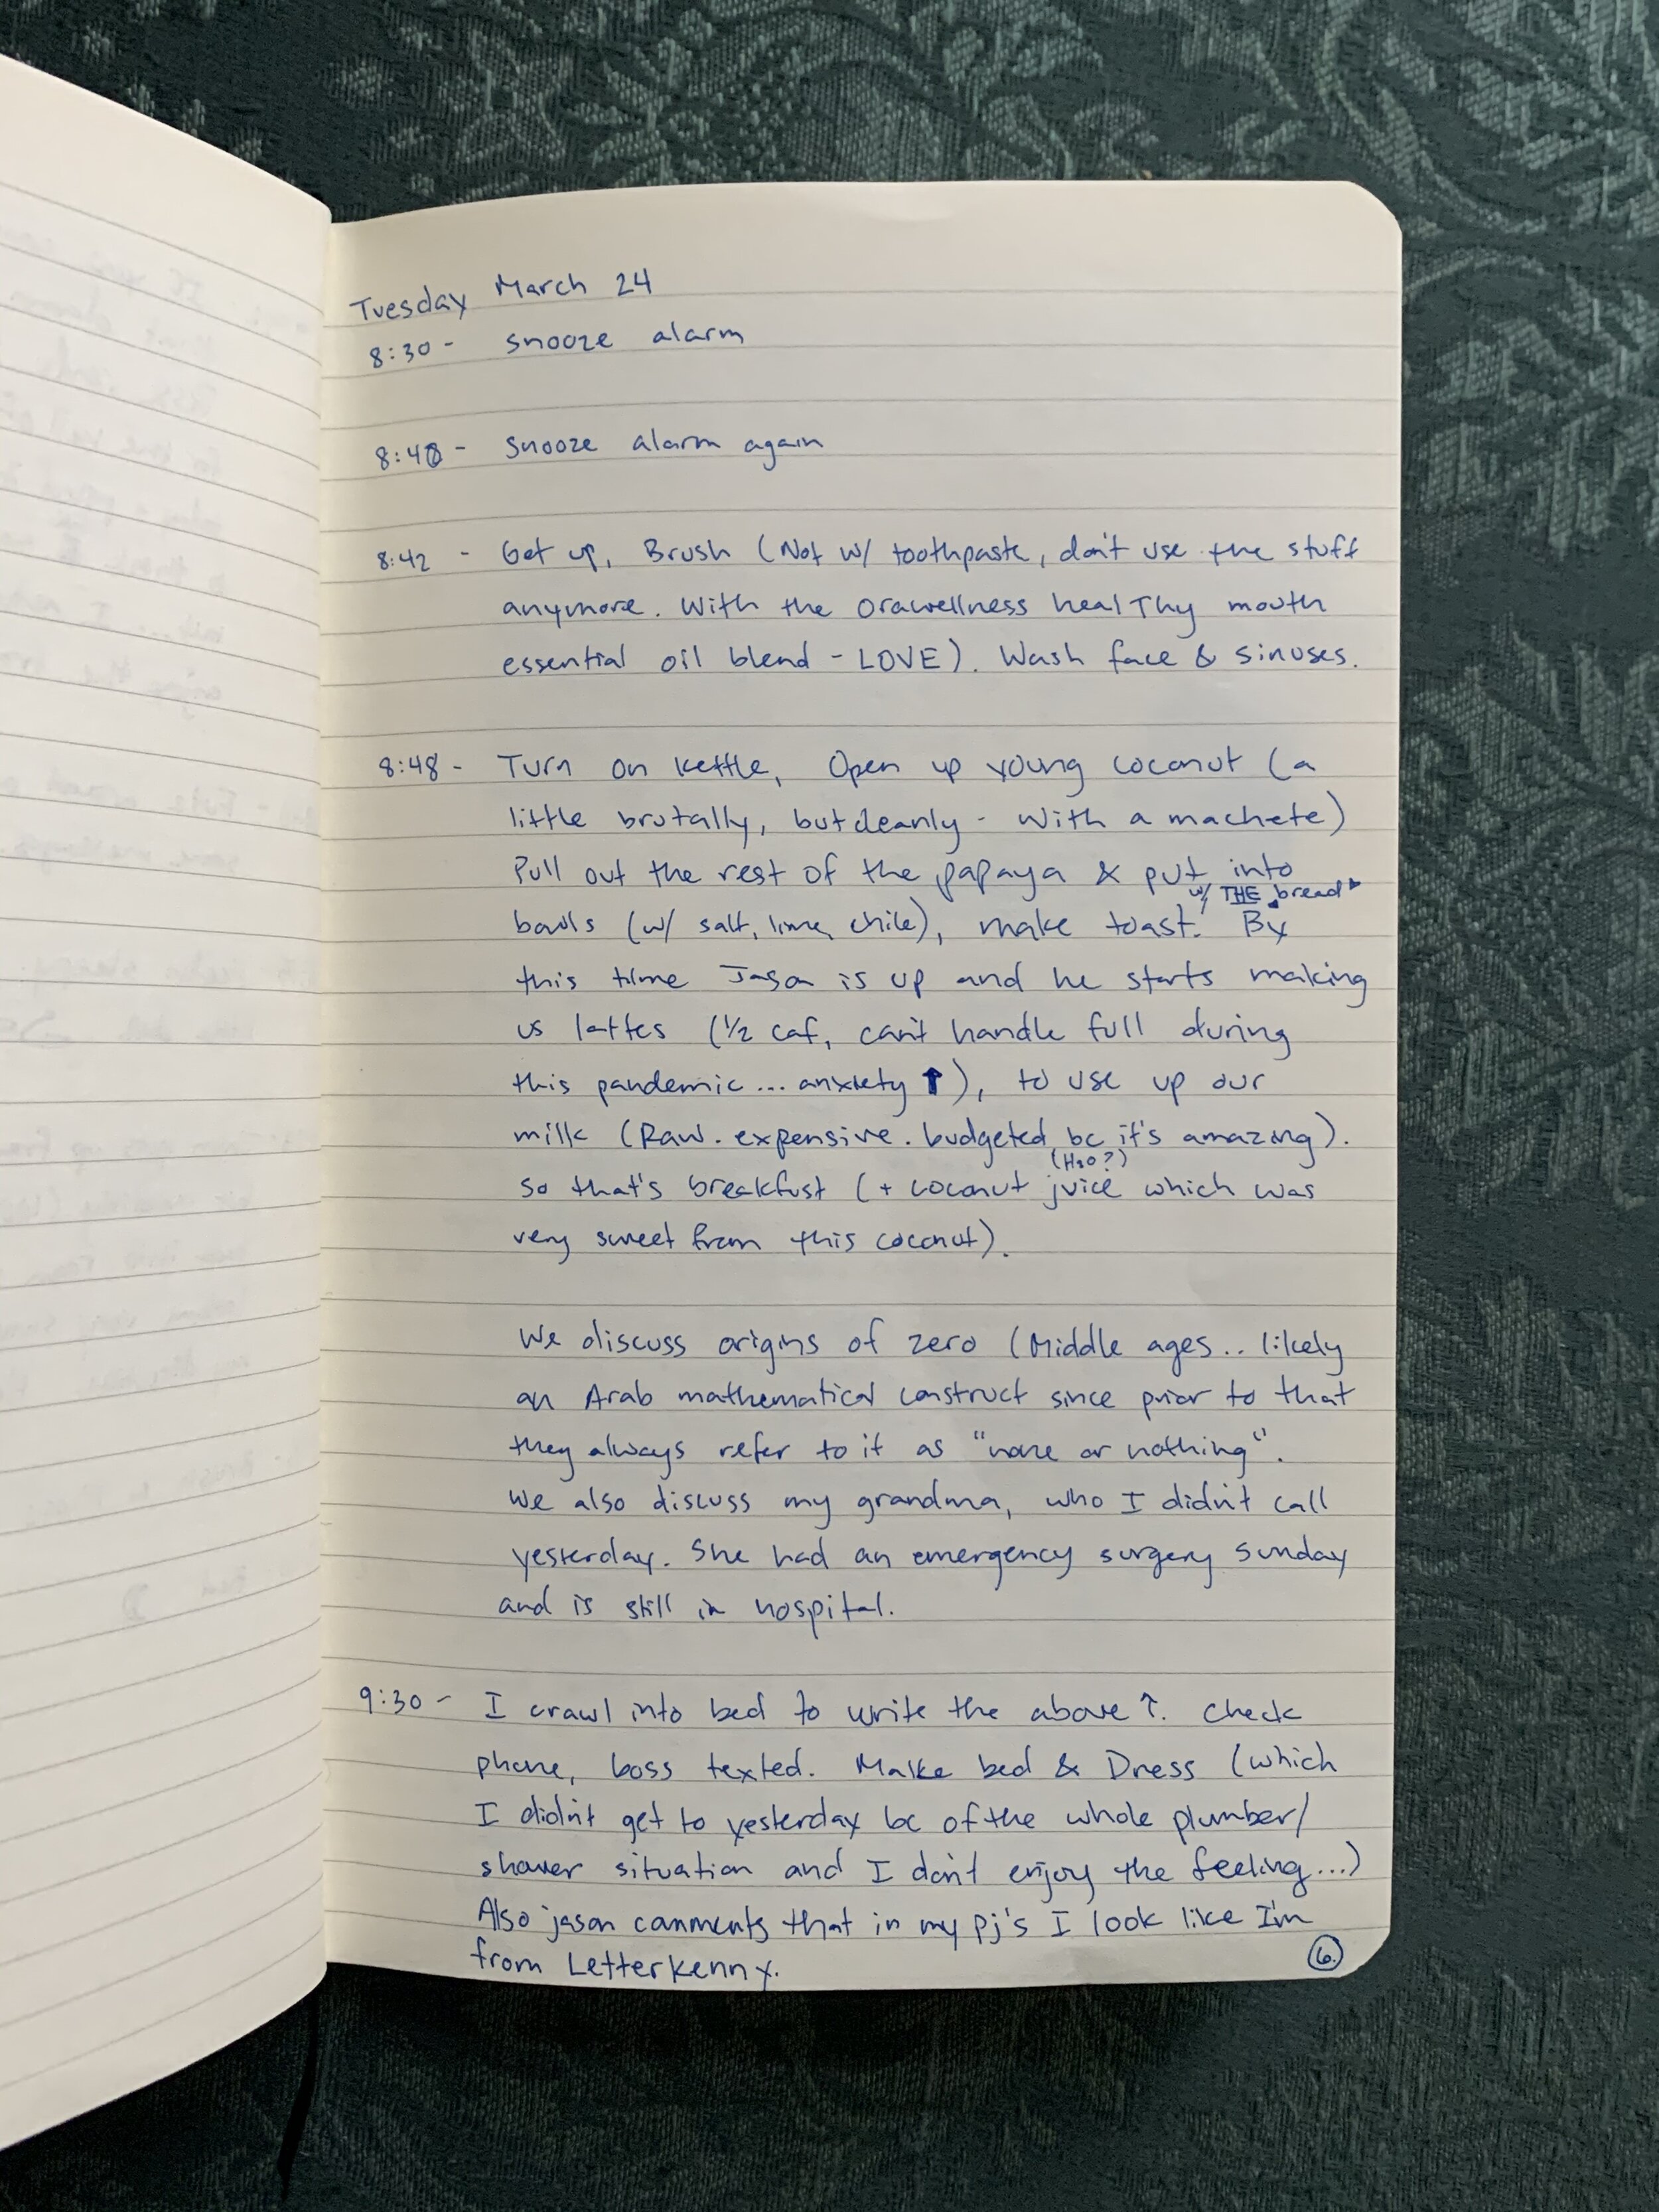 Tuesday March 24
8:30 - snooze alarm
8:40 - snooze alarm again
8:42 - Get up, Brush (Not w/ toothpaste, don't use the stuff
anymore. With the orawellness healThy mouth
essential oil blend - LOVE). Wash face & sinuses.
8:48 - Turn on kettle, Open up young coconut (a
little brutally, but cleanly - with a machete)
Pull out the rest of the papaya & put into
w/ THE bread
bowls (w/ salt, lime, chile), make toast. By
this time Jason is up and he starts making
us lattes (1/2 caf, can't handle full during
this pandemic... anxiety ⬆), to use up our
milk (Raw. expensive. budgeted bc it's amazing).
(H2O?)
so that's breakfast (+ coconut juice which was
very sweet from this coconut).
We discuss origins of zero (Middle ages.. likely
an Arab mathematical construct since prior to that
they always refer to it as "none or nothing".
We also discuss my grandma, who I didn't call
yesterday. She had an emergency surgery Sunday
and is still in hospital.
9:30 - I crawl into bed to write the above ↑. Check
phone, boss texted. Make bed & Dress (which
I didn't get to yesterday bc of the whole plumber/
shower situation and I don't enjoy the feeling...)
Also jason comments that in my pj's I look like I'm
from Letterkenny.
6.